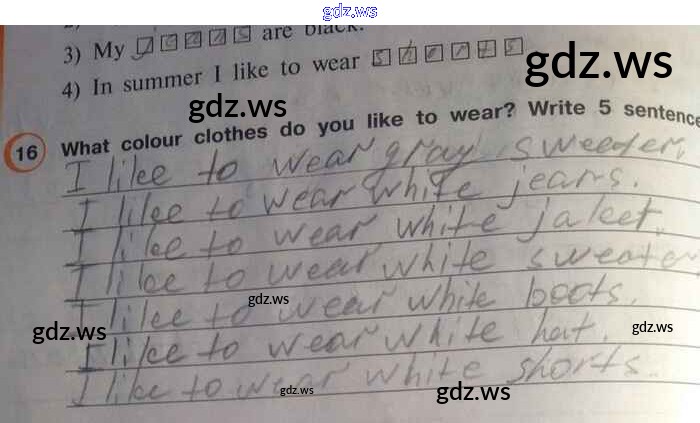 gdz.ws
3) My jeans are black.
4) In summer I like to wear shorts
gdz.ws
gdz.ws
16 What colour clothes do you like to wear? Write 5 sentence
I like to wear gray sweeter.
I like to wear white jeans.
I like to wear white jaket.
I like to wear white sweater
gdz.ws
I like to wear white boots.
gdz.ws
gdz.ws
I like to wear white hat.
I like to wear white shorts.
gdz.ws
gdz.ws